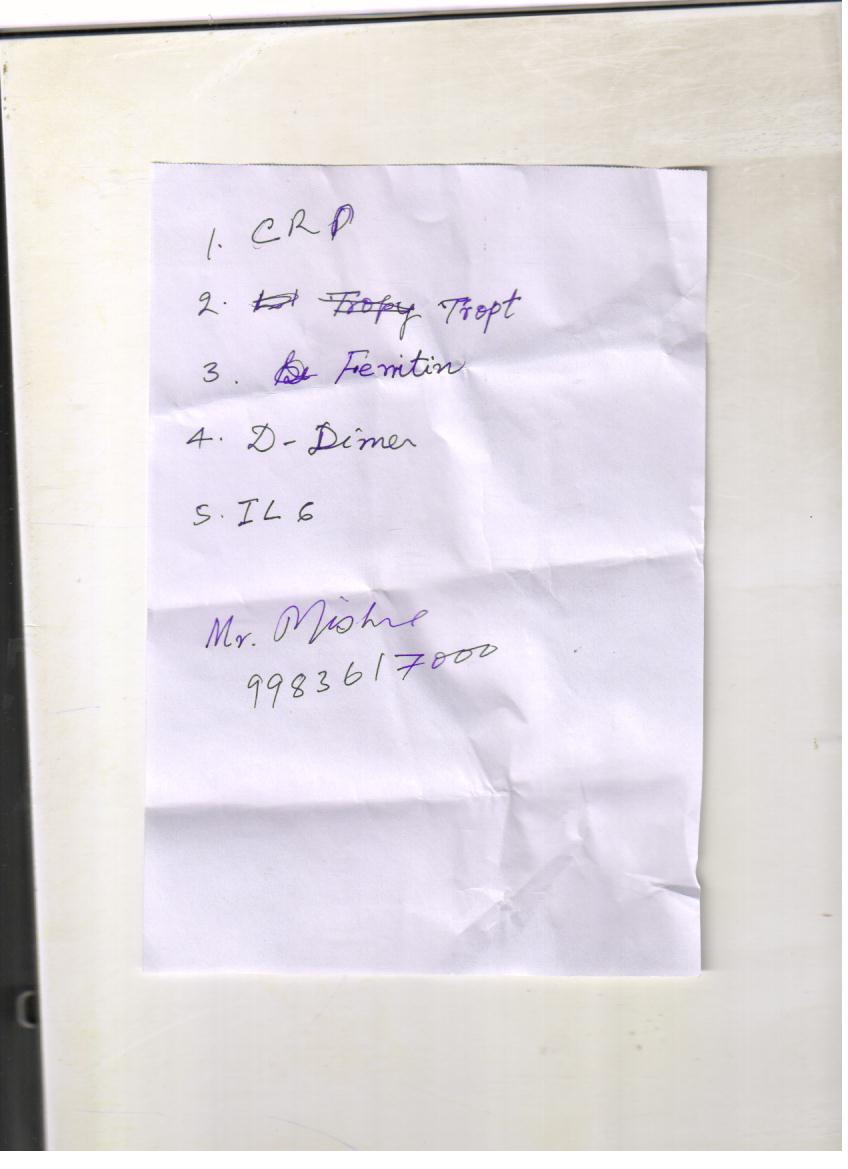 1. CRP
2. Tropy Tropt
3. Ferritin
4. D-Dimer
5. IL 6
Mr. Mishra
9983617000